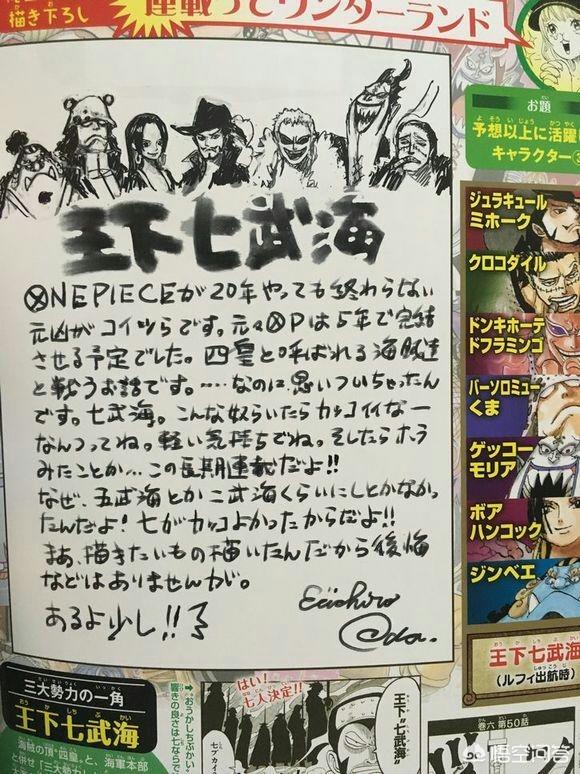 描き下ろし
連載ってワンダーランド
お題
予想以上に活躍
よそういじょうかつやく
キャラクター
王下七武海
ⓍNE PIECEが20年やっても終わらない
元凶がコイツらです。元々ⓍPは5年で完結
させる予定でした。四皇と呼ばれる海賊達
と戦うお話です。……なのに、思いついちゃったん
です。七武海。こんな奴らいたらカッコイイなー
なんつってね。軽い気持ちでね。そしたらホラ
みたことか…この長期連載だよ!!
なぜ、五武海とか二武海くらいにしとかなかっ
たんだよ!七がカッコよかったからだよ!!
まあ、描きたいもの描いたんだから後悔
などはありませんが。
あるよ少し!!
Eiichiro
Oda.
ジュラキュール
ミホーク
クロコダイル
ドンキホーテ
ドフラミンゴ
バーソロミュー
くま
ゲッコー
モリア
ボア
ハンコック
ジンベエ
おうかしちぶかい
王下七武海
しゅっこうじ
(ルフィ出航時)
さんだいせいりょく いっかく
三大勢力の一角
おうかしちぶかい
王下七武海
海賊の頂“四皇”と、海軍本部
と併せ「三大勢力」
→おうかしちぶかい
響きの良さは七ならで
はい!
七人決定!!
王下“七武海”
七ブカイ
巻六 第50話
悟空问答